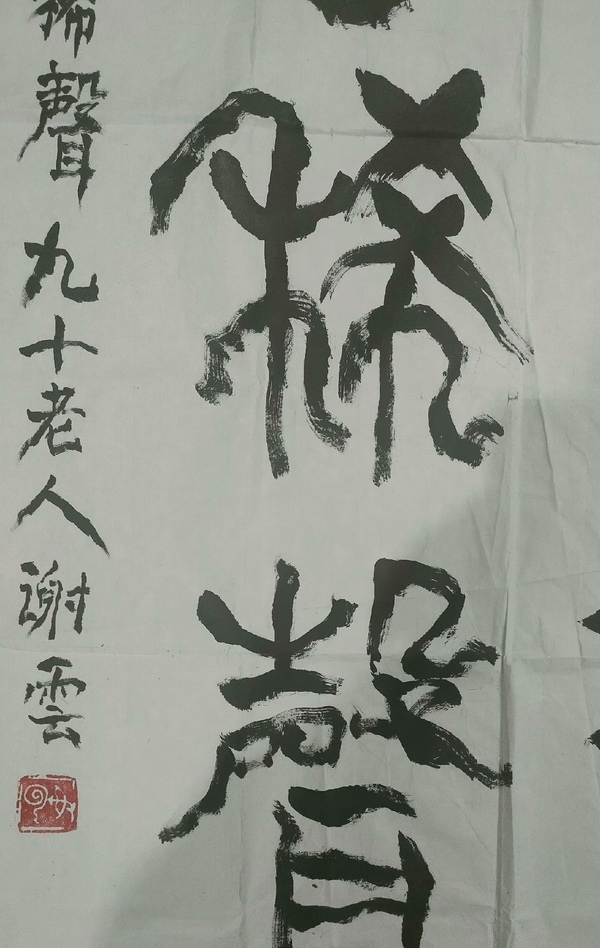 稀聲
稀聲九十老人謝雲